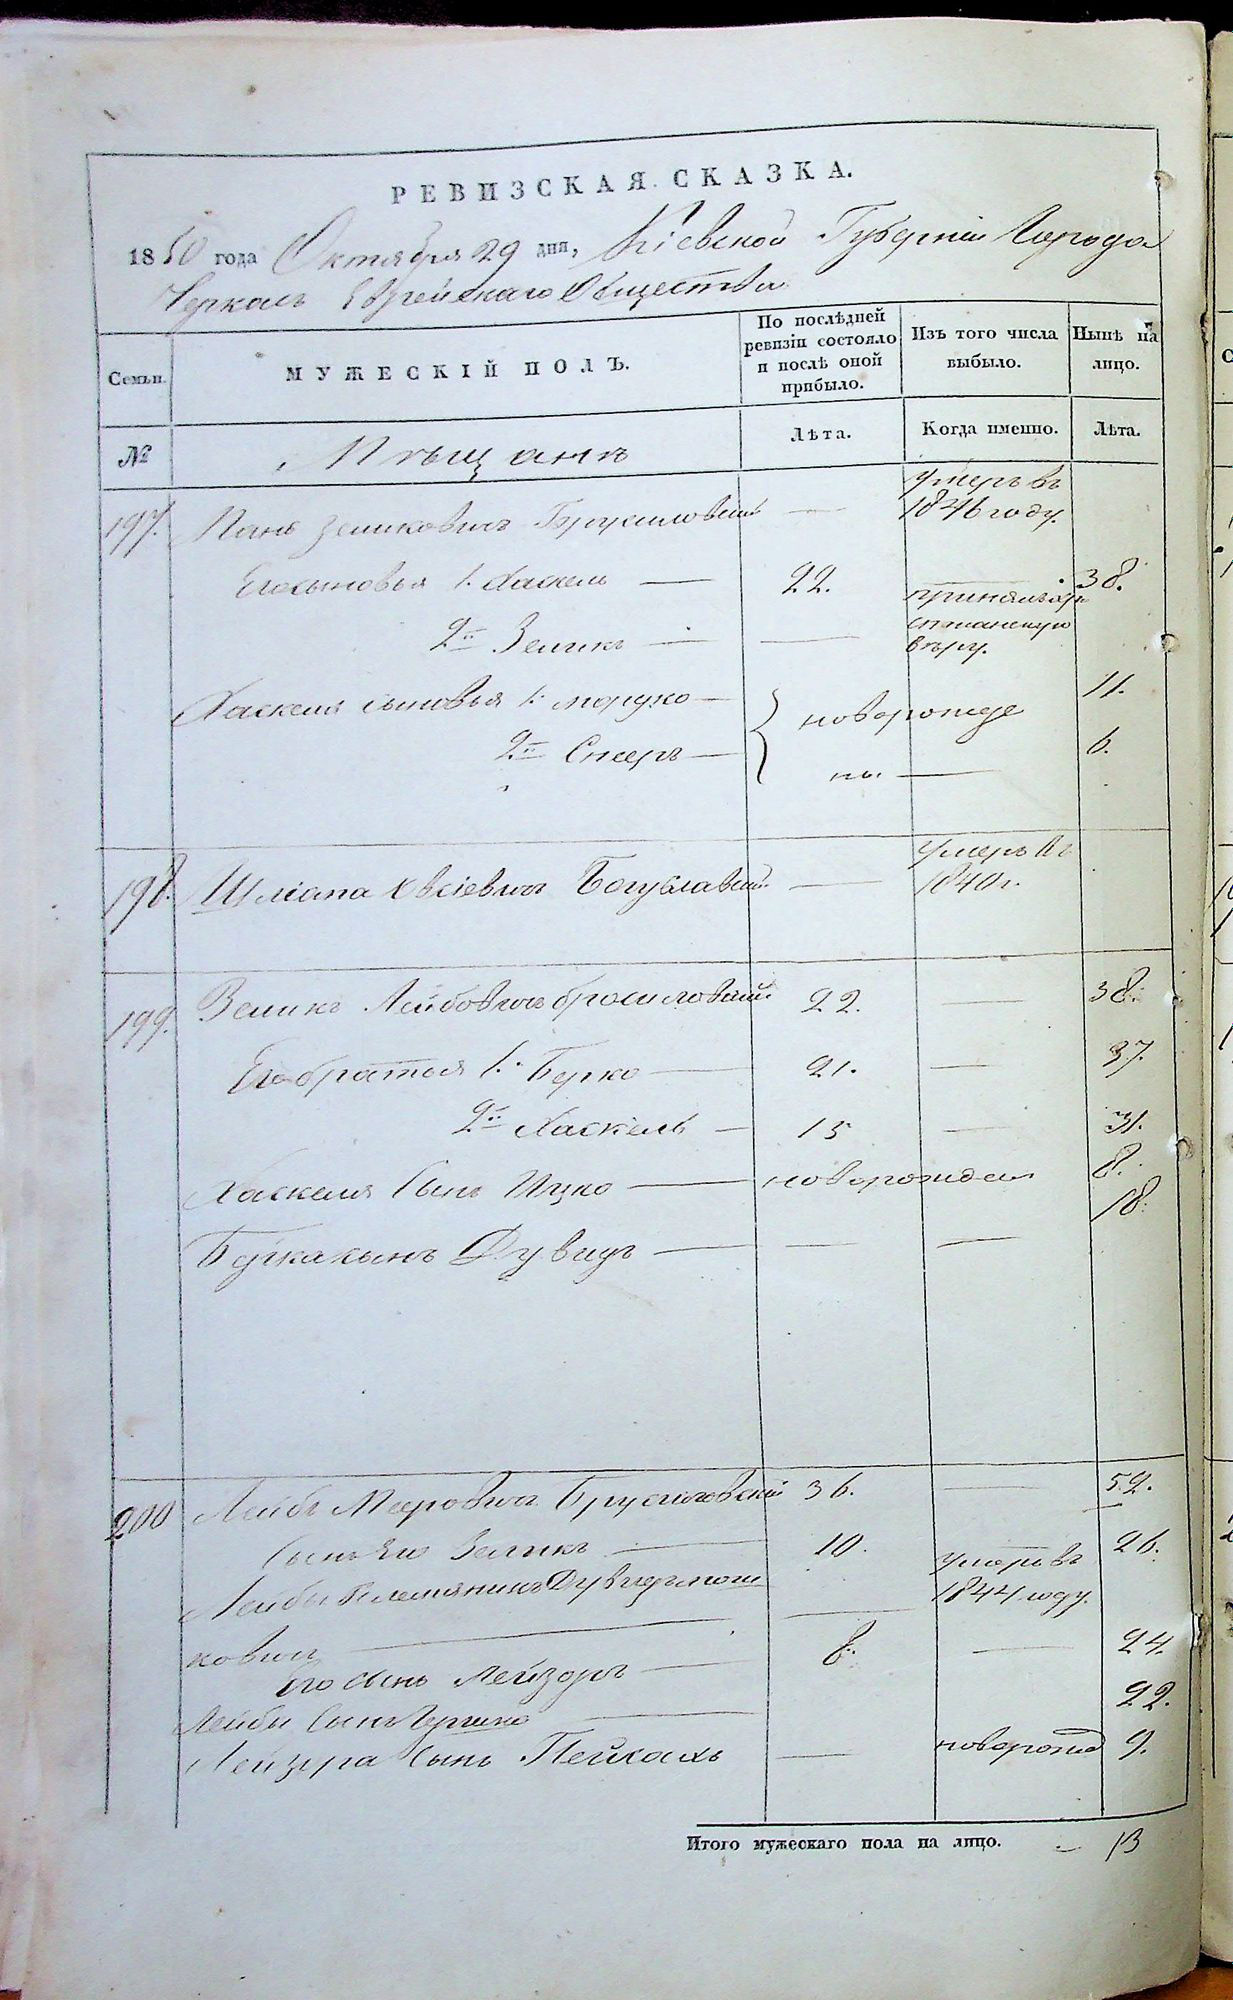 РЕВИЗСКАЯ СКАЗКА.
1850 года Октября 29 дня, Кіевской Губерніи Города
Черкасъ Еврейскаго Общества
Семьи.
МУЖЕСКІЙ ПОЛЪ.
По послѣдней ревизіи состояло и послѣ оной прибыло.
Изъ того числа выбыло.
Нынѣ на лицо.
№
Мѣщанъ
Лѣта.
Когда именно.
Лѣта.
197. Зеликовичъ Брусиловскій — умеръ въ 1846 году.
Его сыновья 1. Хаскель — 22. 38.
2й Зеликъ — — принялъ христіанскую вѣру.
Хаскеля сыновья 1: Мошко — новорожде 11.
2й — ны. — 6.
198. Шліома Евсіевичъ Богуславскій — умеръ въ 1840 г.
199. Зеликъ Лейбовичъ Брусиловскій 22. — 38.
Его братья 1. Берко — 21. — 37.
2й Хаскель — 15 — 31.
Хаскеля сынъ Ицко — новорожден 8.
Берка сынъ Дувидъ — — — 18.
200 Лейба Мееровичъ Брусиловскій 36. — 52.
Сынъ его Зеликъ — 10. 26.
Лейбы племянникъ Дувидъ Мош
ковичъ — — умеръ въ 1844 году.
Его сынъ Лейзоръ — 8. — 24.
Лейбы сынъ — 22.
Лейзора сынъ Пейсахъ — новорожд 9.
Итого мужескаго пола на лицо. — 13